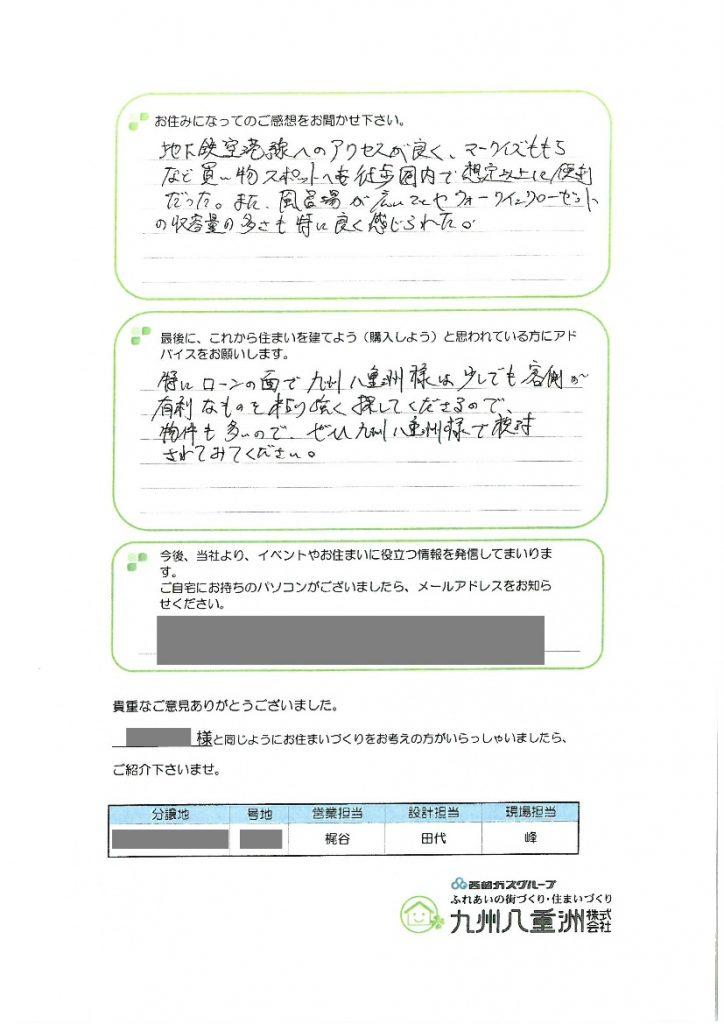 お住みになってのご感想をお聞かせ下さい。
地下鉄空港線へのアクセスが良く、マークイズももち
など買い物スポットへも徒歩圏内で想定以上に便利
だった。また、風呂場が広いことやウォークインクローゼット
の収容量の多さも特に良く感じられた。
最後に、これから住まいを建てよう（購入しよう）と思われている方にアド
バイスをお願いします。
特にローンの面で九州八重洲様は少しでも客側が
有利なものを粘り強く探してくださるので、
物件も多いので、ぜひ九州八重洲様で検討
されてみてください。
今後、当社より、イベントやお住まいに役立つ情報を発信してまいりま
す。
ご自宅にお持ちのパソコンがございましたら、メールアドレスをお知ら
せください。
貴重なご意見ありがとうございました。
様と同じようにお住まいづくりをお考えの方がいらっしゃいましたら、
ご紹介下さいませ。
分譲地 号地 営業担当 設計担当 現場担当
梶谷 田代 峰
西部ガスグループ
ふれあいの街づくり・住まいづくり
九州八重洲株式会社